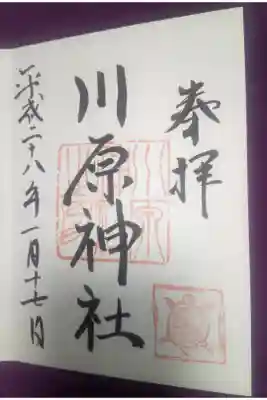 奉拝
川原神社
平成二十八年一月十七日